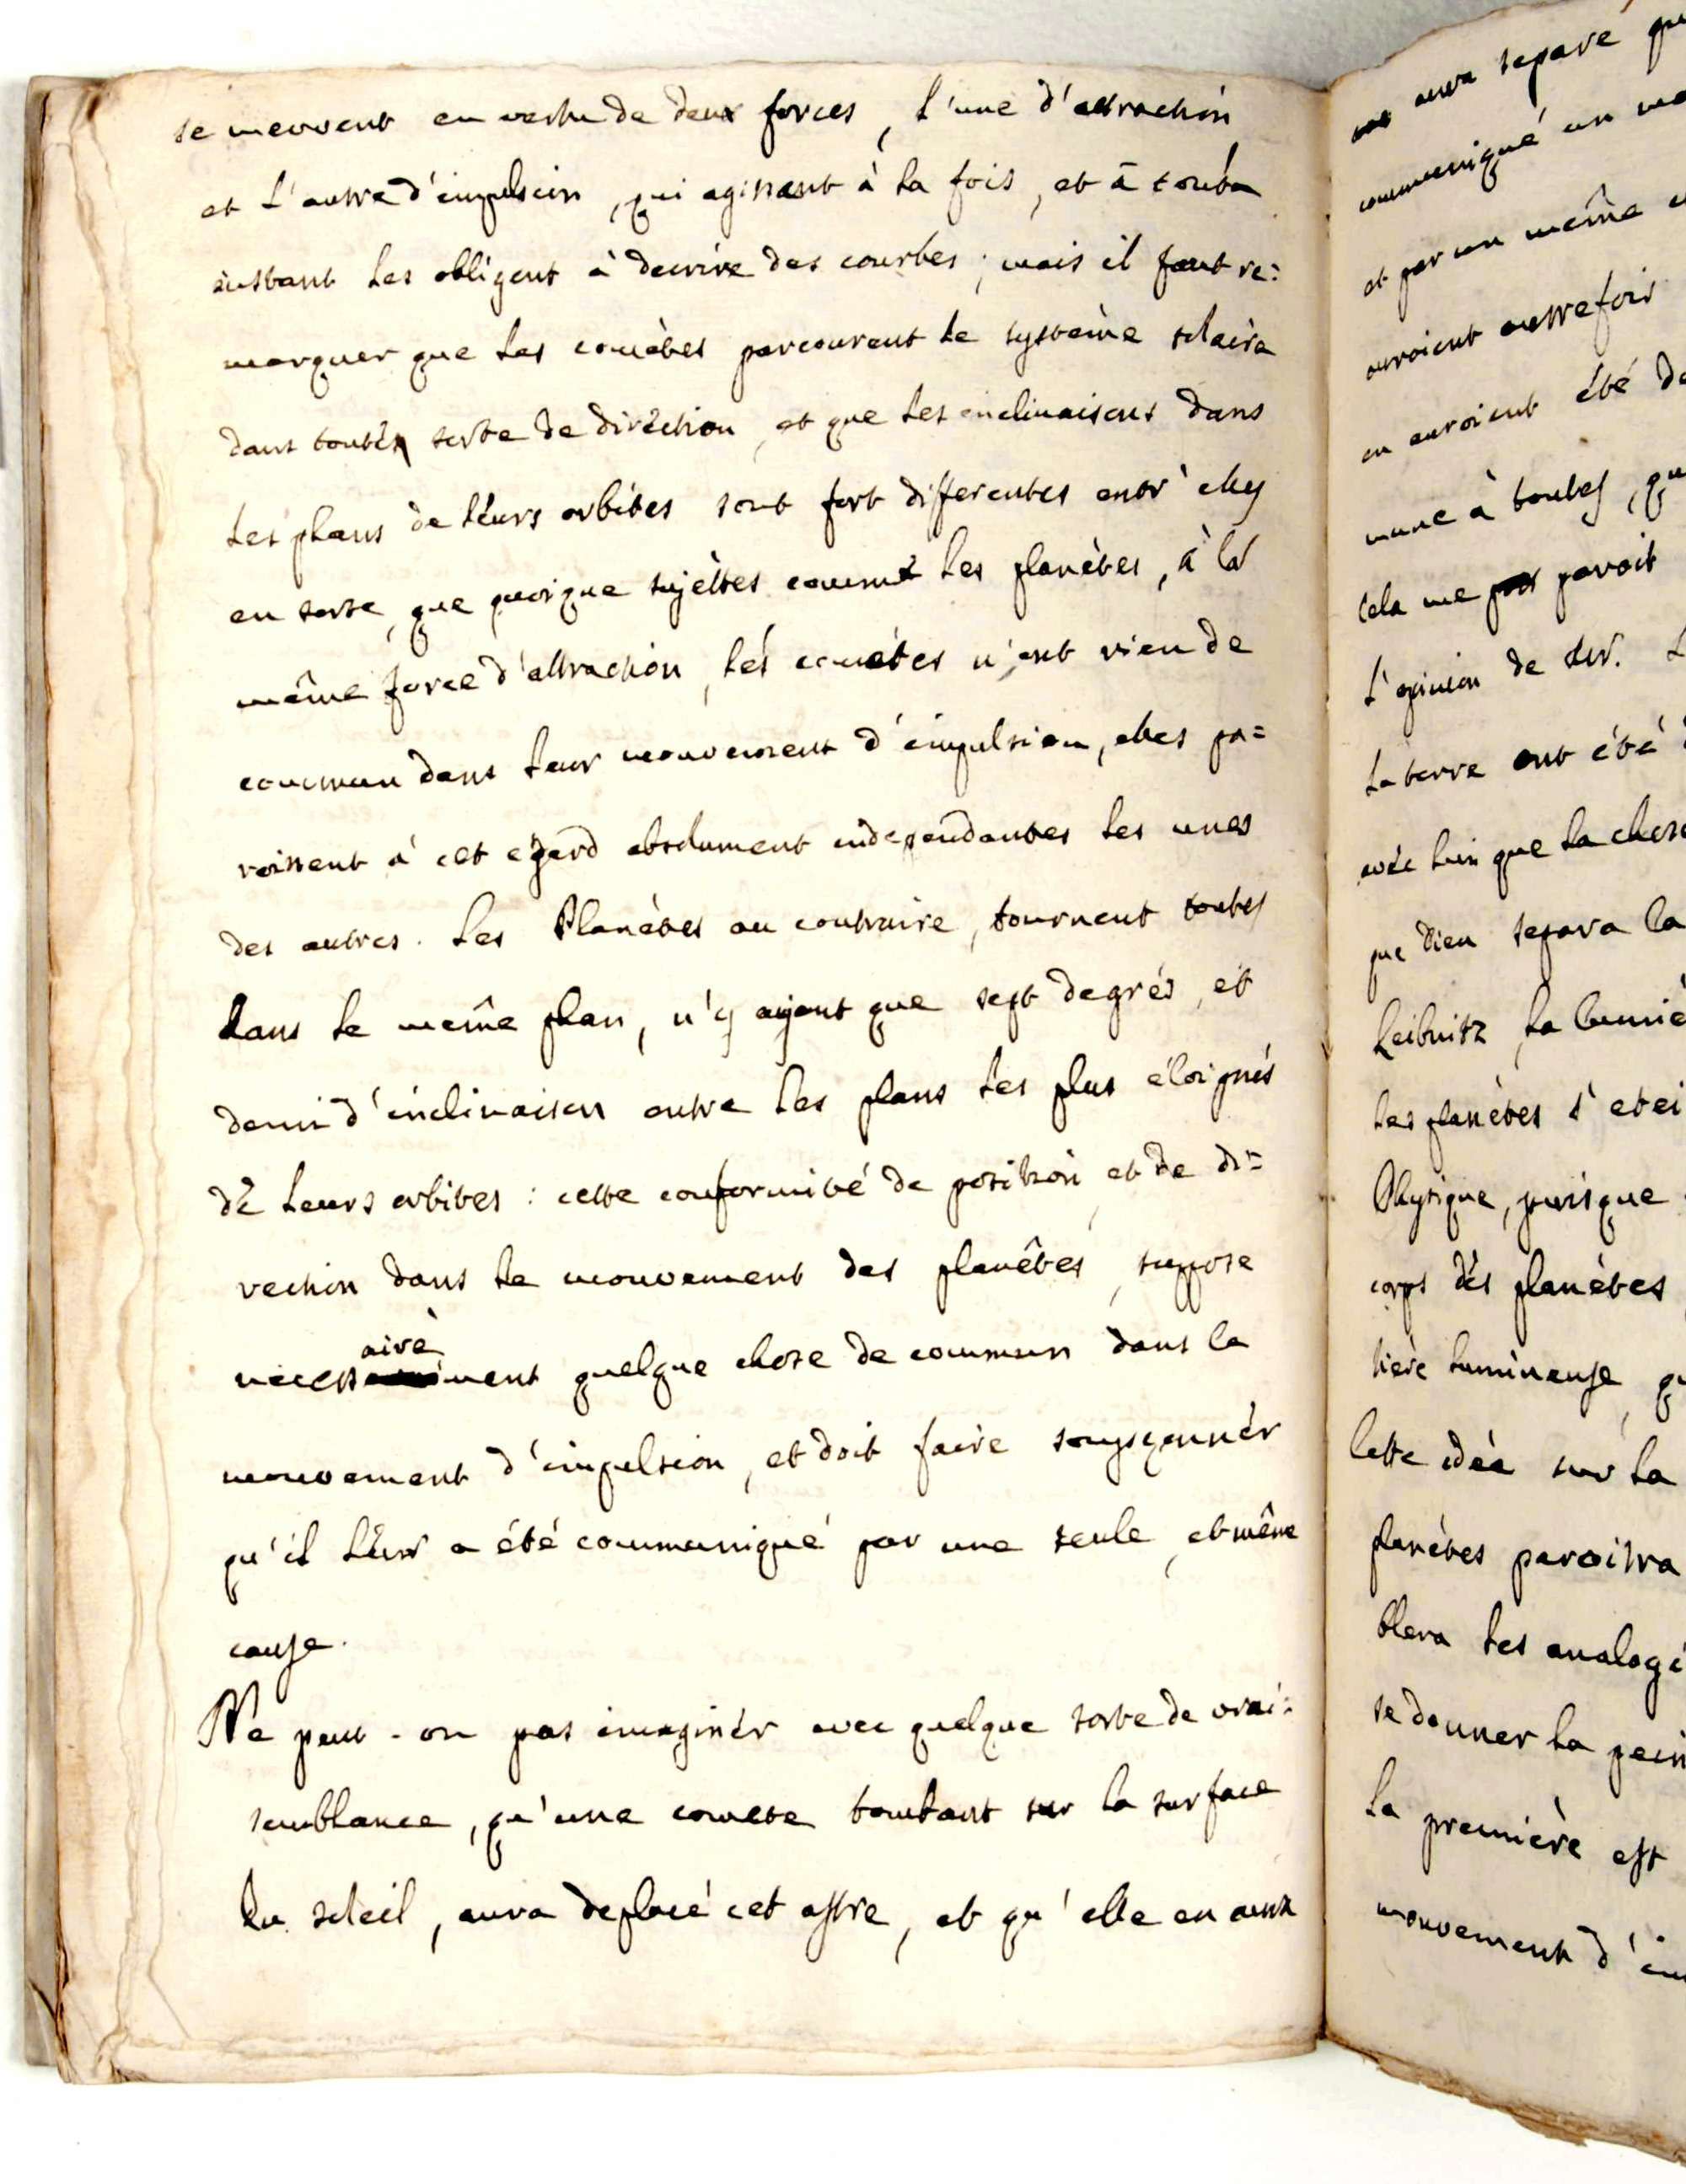 se meuvent en vertu de deux forces, l'une d'attraction
et l'autre d'impulsion, qui agissant à la fois, et à toute
instant les obligent à decrire des courbes; mais il faut re=
marquer que les comètes parcourent le système solaire
dans toutes sorte de dirèction, et que les inclinaisons dans
les plans de leurs orbites sont fort differentes entr'elles
en sorte, que quoique sujèttes comme les planètes, à la
même force d'attraction, les comètes n'ont rien de
commun dans leur mouvement d'impulsion, elles pa=
roissent à cet egard absolument independantes les unes
des autres. Les Planètes au contraire, tournent toutes
dans le même plan, n'y ayant que sept degrés, et
demi d'inclinaison entre les plans les plus éloignés
de leurs orbites: cette conformité de position, et de di=
rection dans le mouvement des planêtes, suppose
necessairement quelque chose de commun dans le
mouvement d'impulsion, et doit faire soupçonnér
qu'il leur a été communiqué par une seule, et même
cause.
Ne peut-on pas imaginér avec quelque sorte de vrai=
semblance, qu'une comete tombant sur la surface
du soleil, aura deplacé cet astre, et qu'elle en aura
aura separé
communiqué un
et par un même
auroient autrefois
en auroient été de
mune à toutes, qu
cela me paroit
l'opinion de Mr. L
la terre ont été
avéc lui que la chose
que Dieu separa la
Leibnitz, la lumiè
les planètes s'etei
Physique, puisque
corps dés planètes
tiere lumineuse, qu
Cette idée sur la
planètes paroitra
blera les analogi
se donner la pein
La première est
mouvement d'im